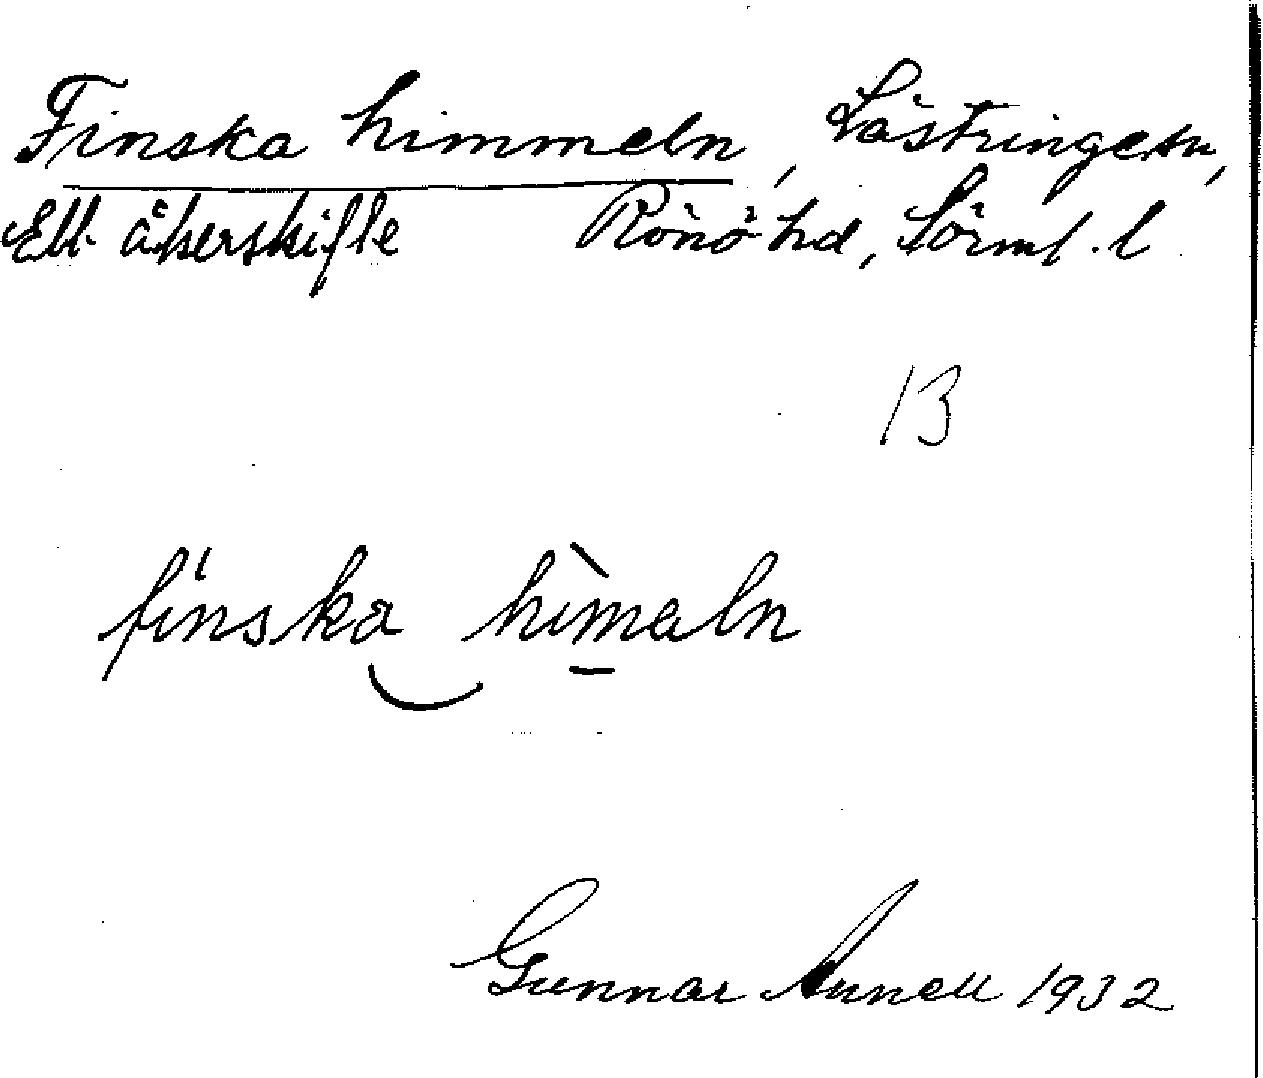 Finska himmeln, Lästringe sn,
Ett åkerskifte Rönö hd, Sörml. l
13
finska himaln
Gunnar Annell 1932